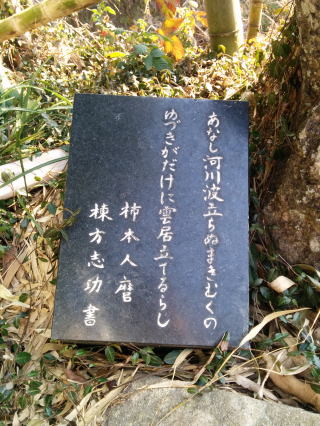 あなし河川波立ちぬまきむくの
ゆづきがだけに雲居立てるらし
柿本人麿
棟方志功書